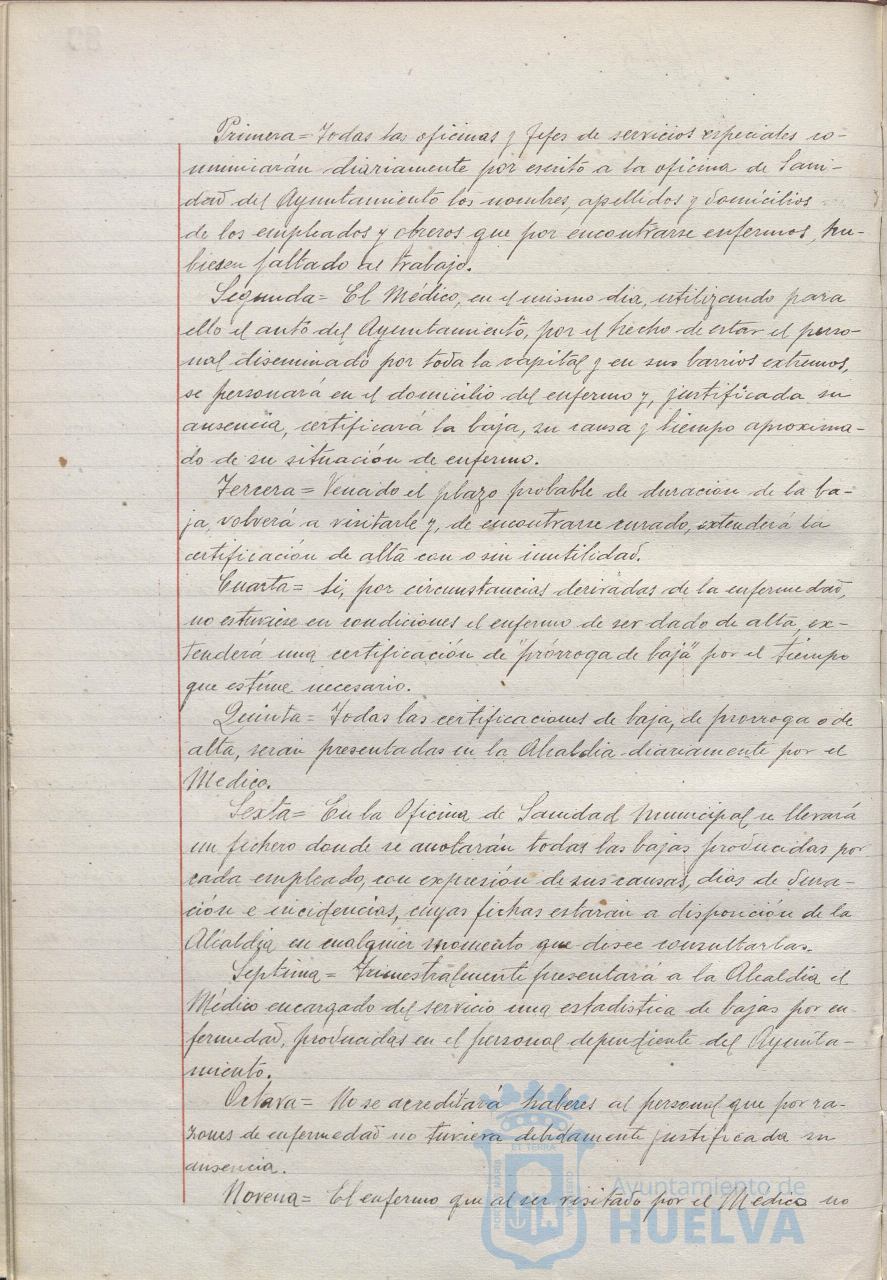 Primera= Todas las oficinas y Jefes de servicios especiales co-
municarán diariamente por escrito a la oficina de Sani-
dad del Ayuntamiento los nombres, apellidos y domicilios
de los empleados y obreros que por encontrarse enfermos, hu-
biesen faltado al trabajo.
Segunda= El Médico, en el mismo dia, utilizando para
ello el auto del Ayuntamiento, por el hecho de estar el perso-
nal diseminado por toda la capital y en sus barrios extremos,
se personará en el domicilio del enfermo y, justificada su
ausencia, certificará la baja, su causa y tiempo aproxima-
do de su situación de enfermo.
Tercera= Vencido el plazo probable de duración de la ba-
ja, volverá a visitarle y, de encontrarse curado, extenderá la
certificación de alta con o sin inutilidad.
Cuarta= Si, por circunstancias derivadas de la enfermedad,
no estuviese en condiciones el enfermo de ser dado de alta, ex-
tenderá una certificación de "prórroga de baja" por el tiempo
que estime necesario.
Quinta= Todas las certificaciones de baja, de prorroga o de
alta, seran presentadas en la Alcaldia diariamente por el
Medico.
Sexta= En la Oficina de Sanidad Municipal se llevará
un fichero donde se anotarán todas las bajas producidas por
cada empleado, con expresión de sus causas, dias de dura-
ción e incidencias, cuyas fichas estarán a disposición de la
Alcaldia en cualquier momento que desee consultarlas.
Septima= Trimestralmente presentará a la Alcaldia el
Médico encargado del servicio una estadistica de bajas por en-
fermedad, producidas en el personal dependiente del Ayunta-
miento.
Octava= No se acreditará haberes al personal que por ra-
zones de enfermedad no tuviera debidamente justificada su
ausencia.
Novena= El enfermo que al ser visitado por el Medico no
Ayuntamiento de
HUELVA